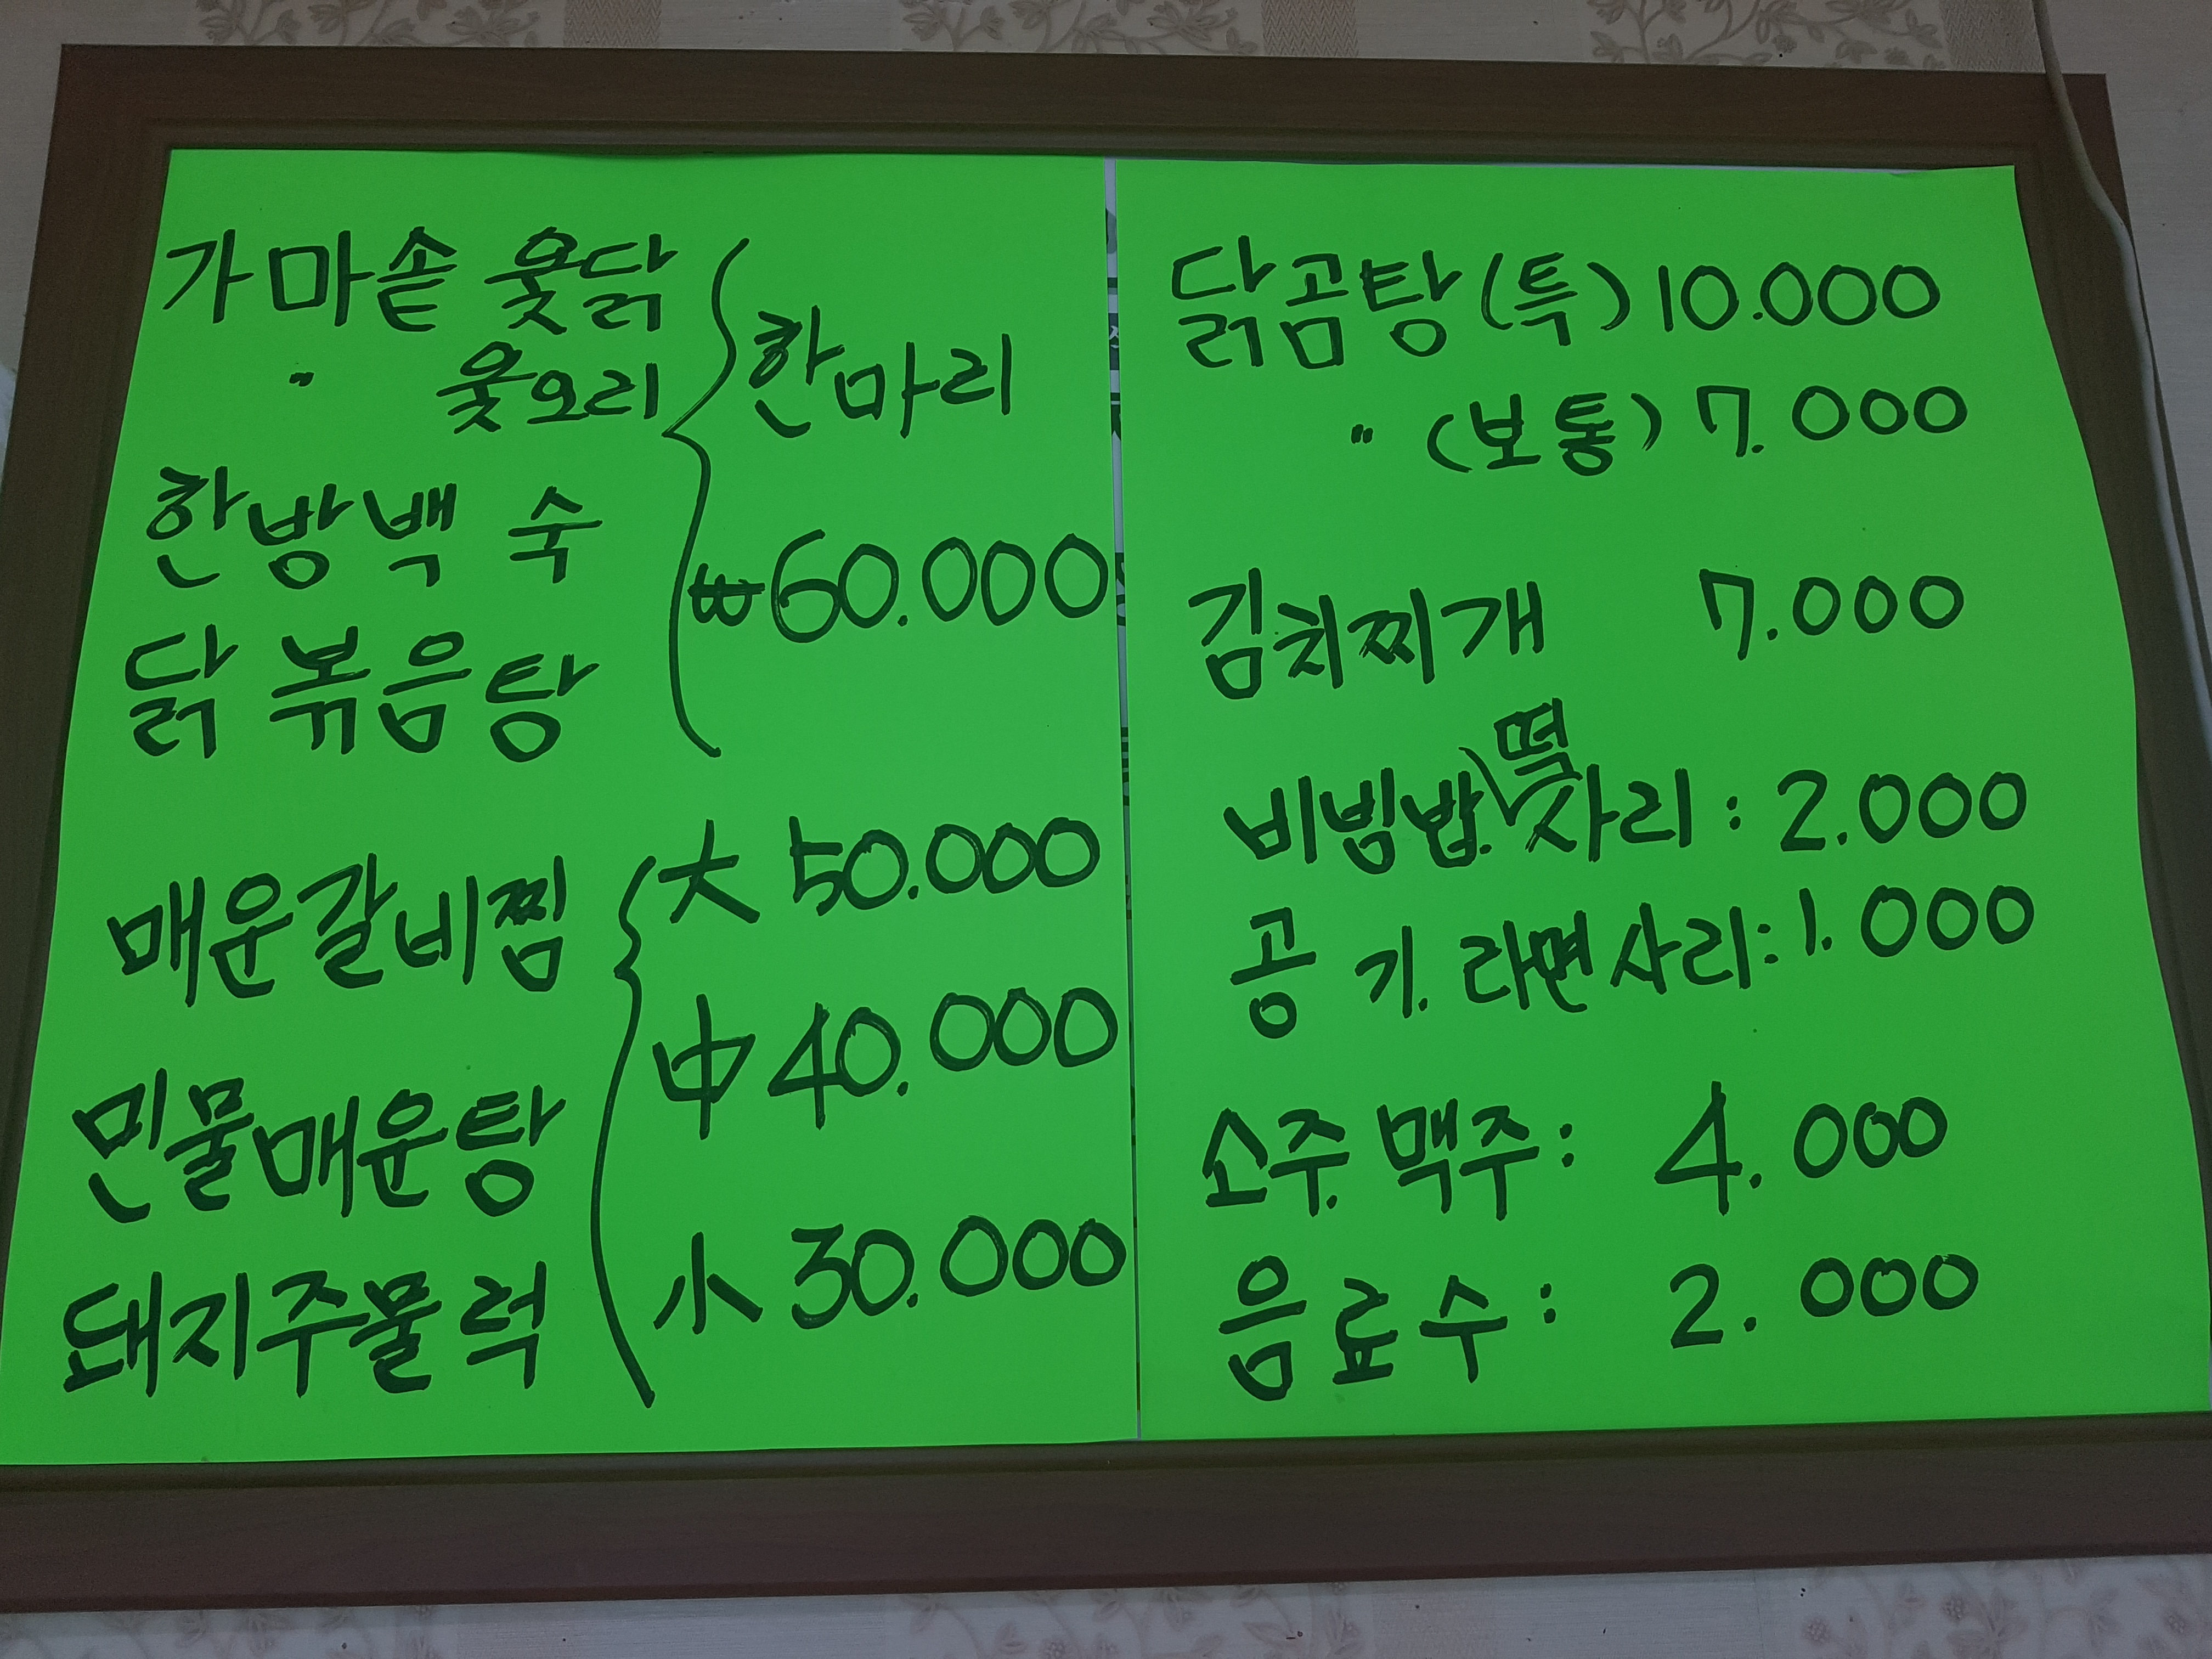 가마솥 옻닭
〃 옻오리
한방백숙
닭볶음탕
한마리
₩60.000
매운갈비찜
민물매운탕
돼지주물럭
大 50.000
中 40.000
小 30.000
닭곰탕(특) 10.000
〃 (보통) 7.000
김치찌개 7.000
떡
비빔밥. 사리: 2.000
공기. 라면사리: 1.000
소주. 맥주: 4.000
음료수: 2.000